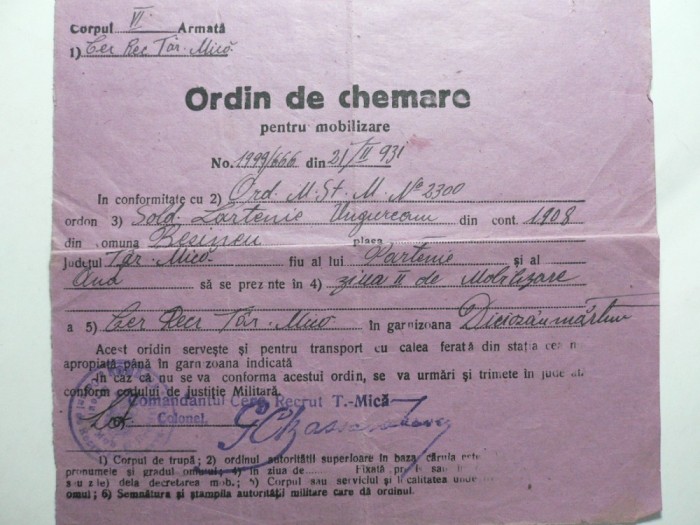 Corpul VI Armată
1) Cer Rec Târ. Mică
Ordin de chemare
pentru mobilizare
No. 1999/666 din 21/II 931
In conformitate cu 2) Ord. M. St. M. No 2300
ordon 3) Sold. Ungurean din cont. 1908
din comuna plasa
județul Târ. Mică fiu al lui Partenie și al
Ana să se prezinte în 4) ziua II de Mobilizare
a 5) Cer Recr Târ. Mică în garnizoana Diciozânmărtin
Acest oridin servește și pentru transport cu calea ferată din stația cea
apropiată până în garnizoana indicată
In caz că nu se va conforma acestui ordin, se va urmări și trimete în
conform codului de justiție Militară.
Comandantul Cerc. Recrut T.-Mică
Colonel,
1) Corpul de trupă; 2) ordinul autorității superioare in baza căruia
pronumele și gradul omului; 4) in ziua de........ Fixată
sau zile) dela decretarea mob.; 5) Corpul sau serviciul și calitatea
omul; 6) Semnătura și ștampila autorității militare care dă ordinul.